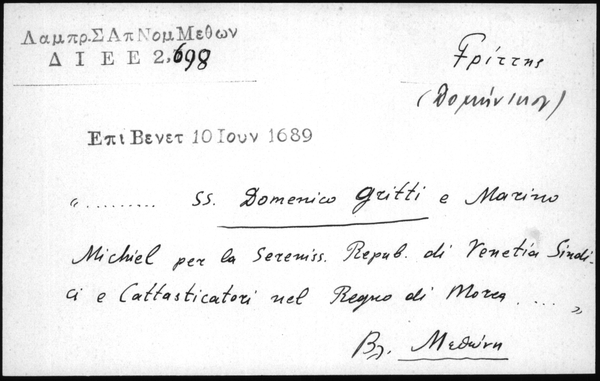 Λαμπρ.ΣΑπΝομΜεθων
ΔΙΕΕ 2,698
Γρίττης
(Δομήνικος)
ΕπιΒενετ 10Ιουν 1689
"......... SS. Domenico Gritti e Marino
Michiel per la Sereniss. Repub. di Venetia Sindi-
ci e Cattasticatori nel Regno di Morea .... "
Βλ. Μεθώνη